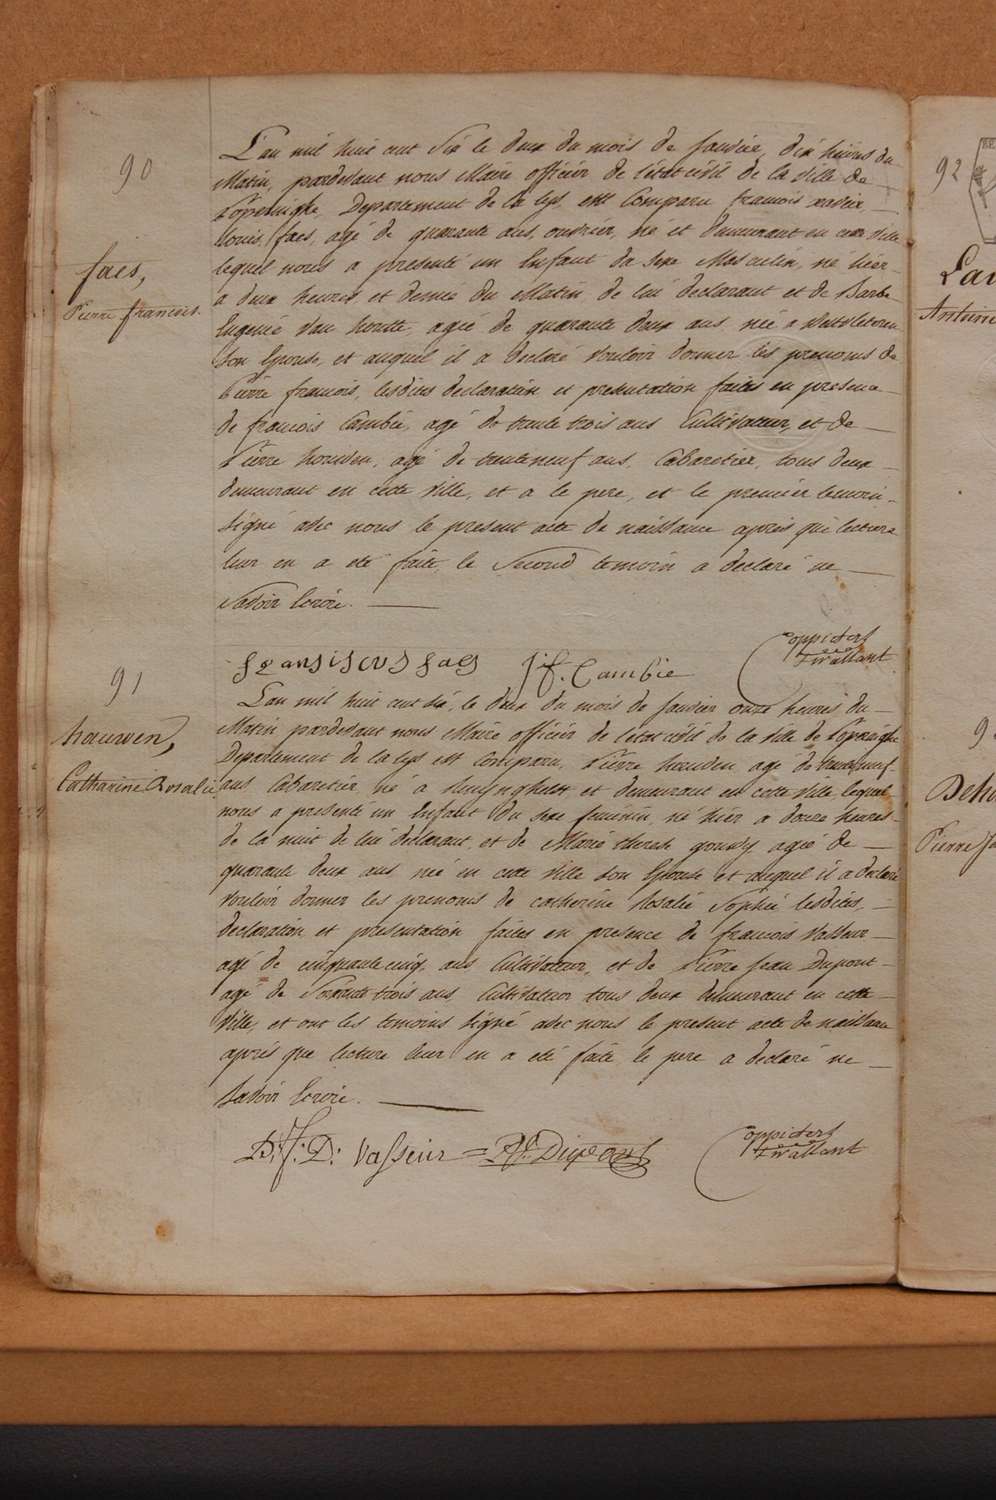 90
faes,
Pierre francois.
L'an mil huit cent Six le deux du mois de Janvier, dix heures du
Matin, pardevant nous Maire officier de l'état civil de la ville de
Poperinghe, Departement de la Lys, est Comparu francois xavier
Louis faes, agé de quarante ans, ouvrier, né et demeurant en cette ville
lequel nous a presenté un Enfant du Sexe Masculin, né hier
a deux heures et demie du Matin de lui declarant et de Barbe
Eugenie Van houtte, agée de quarante deux ans née a Westvleteren
Son Epouse, et auquel il a declaré vouloir donner les prenoms de
Pierre francois, lesdites declaration et presentation faites en presence
de francois Cambie, agé de trente trois ans Cultivateur, et de
Pierre houwen, agé de trente neuf ans, Cabaretier, tous deux
demeurant en cette ville, et a le pere, et le premier temoin
signé avec nous le present acte de naissance après que lecture
leur en a été faite, le Second temoin a declaré ne
savoir Ecrire.
fransiscus faes J:f. Cambie
91
hauwen,
Catharine Rosalie
L'an mil huit cent six, le deux du mois de Janvier onze heures du
Matin pardevant nous Maire officier de l'état civil de la ville de Poperinghe
Departement de la Lys est Comparu, Pierre houwen agé de trente neuf
ans Cabaretier né à et demeurant en cette ville, lequel
nous a presenté un Enfant du Sexe feminin, né hier a douze heures
de la nuit de lui declarant, et de Marie therese agée de
quarante deux ans née en cette ville son Epouse et auquel il a declaré
vouloir donner les prenoms de catherine Rosalie Sophie lesdites,
declaration et presentation faites en presence de francois Vasseur
agé de cinquante cinq ans Cultivateur, et de Pierre Jean Dupont
agé de Soixante trois ans, Cultivateur tous deux demeurant en cette
Ville, et ont les temoins signé avec nous le present acte de naissance
après que lecture leur en a été faite le pere a declaré ne
savoir Ecrire.
Vasseur
92
Antoine
Pierre